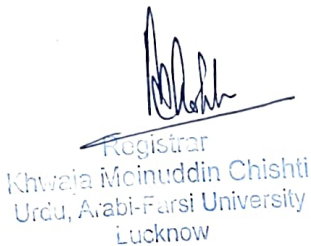 Registrar
Khwaja Moinuddin Chishti
Urdu, Arabi-Farsi University
Lucknow